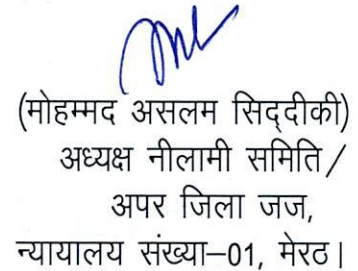 (मोहम्मद असलम सिद्दीकी)
अध्यक्ष नीलामी समिति/
अपर जिला जज,
न्यायालय संख्या–01, मेरठ।